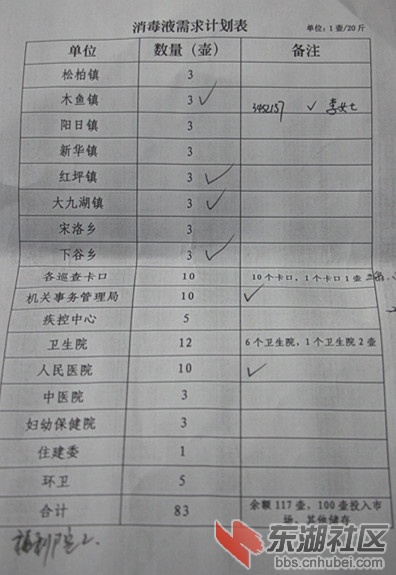 消毒液需求计划表
单位：1 壶/20 斤
单位 数量（壶） 备注
松柏镇 3
木鱼镇 3 ✓ 3452157 ✓ 李女士
阳日镇 3
新华镇 3
红坪镇 3 ✓
大九湖镇 3 ✓
宋洛乡 3
下谷乡 3 ✓
各巡查卡口 10 10 个卡口，1 个卡口 1 壶
机关事务管理局 10 ✓
疾控中心 5
卫生院 12 6 个卫生院，1 个卫生院 2 壶
人民医院 10 ✓
中医院 3
妇幼保健院 3
住建委 1
环卫 5
合计 83 余额 117 壶，100 壶投入市
场，其他储存
福利院
东湖社区
bbs.cnhubei.com